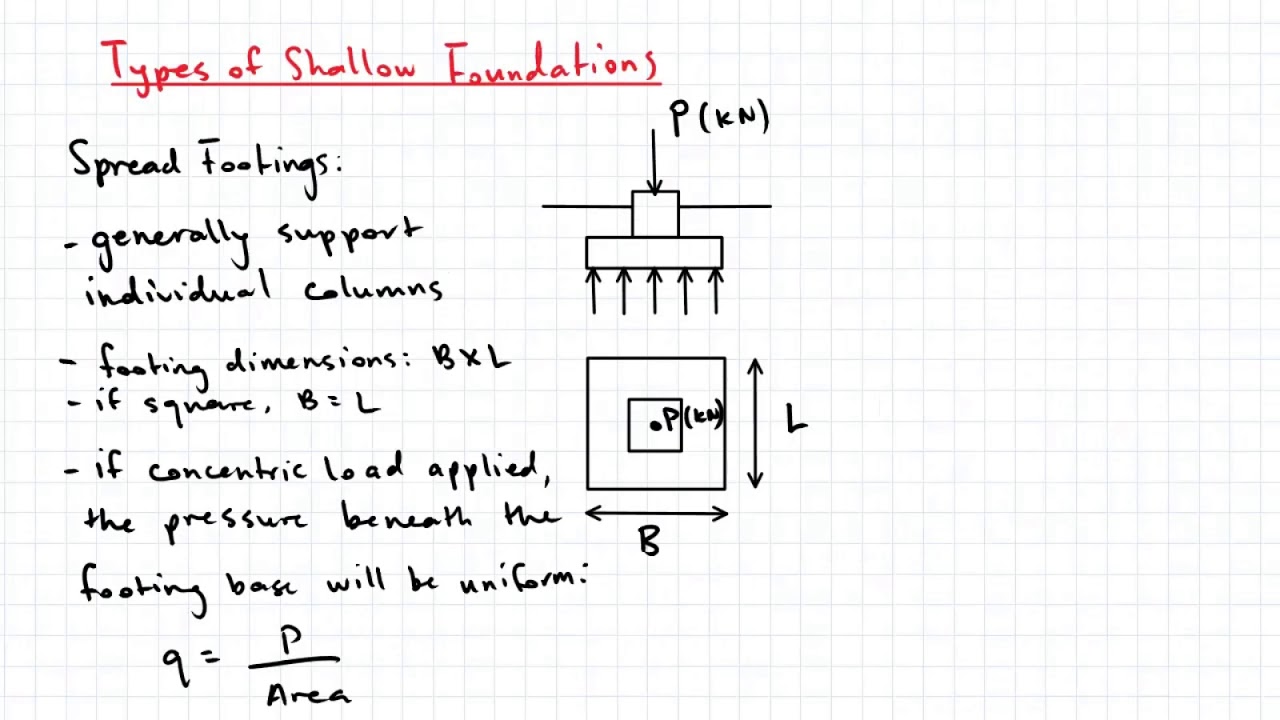 Types of Shallow Foundations
P (kN)
Spread Footings:
- generally support
individual columns
- footing dimensions: B x L
- if square, B = L
P(kN)
L
- if concentric load applied,
the pressure beneath the
B
footing base will be uniform:
q = P / Area